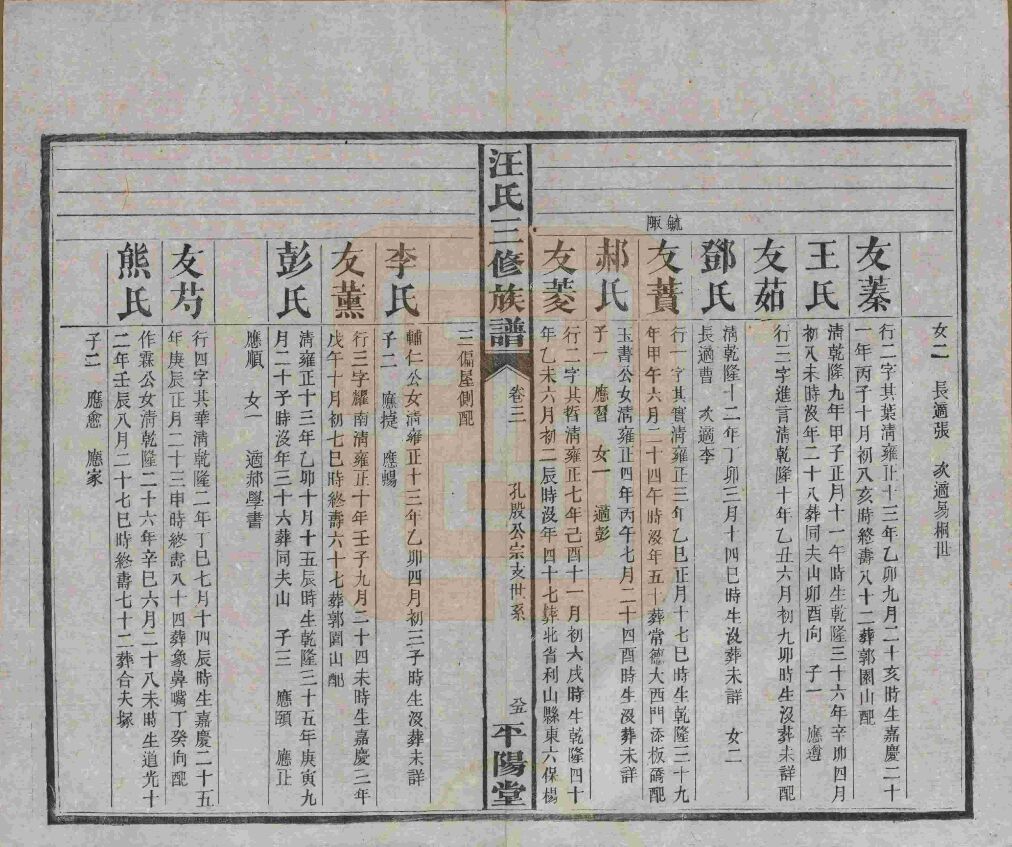 女二　長適張　次適易桐世
友蓁
行二字其葉清雍正十三年乙卯九月二十亥時生嘉慶二十
一年丙子十月初八亥時終壽八十二葬郭園山配
王氏
清乾隆九年甲子正月十一午時生乾隆三十六年辛卯四月
初八未時沒年二十八葬同夫山卯酉向　子一　應遵
友茹
行三字進言清乾隆十年乙丑六月初九卯時生沒葬未詳配
鄧氏
清乾隆十二年丁卯三月十四巳時生沒葬未詳　女二
長適曹　次適李
毓陬
友蕡
行一字其實清雍正三年乙巳正月十七巳時生乾隆三十九
年甲午六月二十四午時沒年五十葬常德大西門添板礄配
郝氏
玉書公女清雍正四年丙午七月二十四酉時生沒葬未詳
子一　應習　女一　適彭
友菱
行二字其哲清雍正七年己酉十一月初六戌時生乾隆四十
年乙未六月初二辰時沒年四十七葬北省利山縣東六保楊
汪氏三修族譜
卷三
孔殷公宗支世系
八五
平陽堂
三偏屋側配
李氏
輔仁公女清雍正十三年乙卯四月初三子時生沒葬未詳
子二　應捷　應暢
友薰
行三字耀南清雍正十年壬子九月二十四未時生嘉慶三年
戊午十月初七巳時終壽六十七葬郭園山配
彭氏
清雍正十三年乙卯十月十五辰時生乾隆三十五年庚寅九
月二十子時沒年三十六葬同夫山　子三　應頤　應止
應順　女一　適郝學書
友芍
行四字其華清乾隆二年丁巳七月十四辰時生嘉慶二十五
年庚辰正月二十三申時終壽八十四葬象鼻嘴丁癸向配
熊氏
作霖公女清乾隆二十六年辛巳六月二十八未時生道光十
二年壬辰八月二十七巳時終壽七十二葬合夫塚
子二　應愈　應家